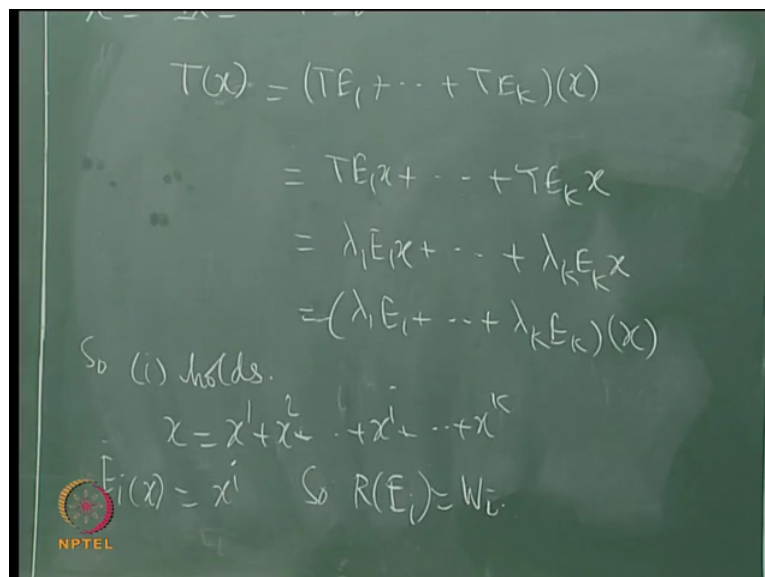 T(x) = (TE₁ + ⋯ + TEₖ)(x)
= TE₁x + ⋯ + TEₖx
= λ₁E₁x + ⋯ + λₖEₖx
= (λ₁E₁ + ⋯ + λₖEₖ)(x)
So (i) holds.
x = x¹ + x² + ⋯ + xⁱ + ⋯ + xᵏ
Eᵢ(x) = xⁱ So R(Eᵢ) = Wᵢ.
NPTEL